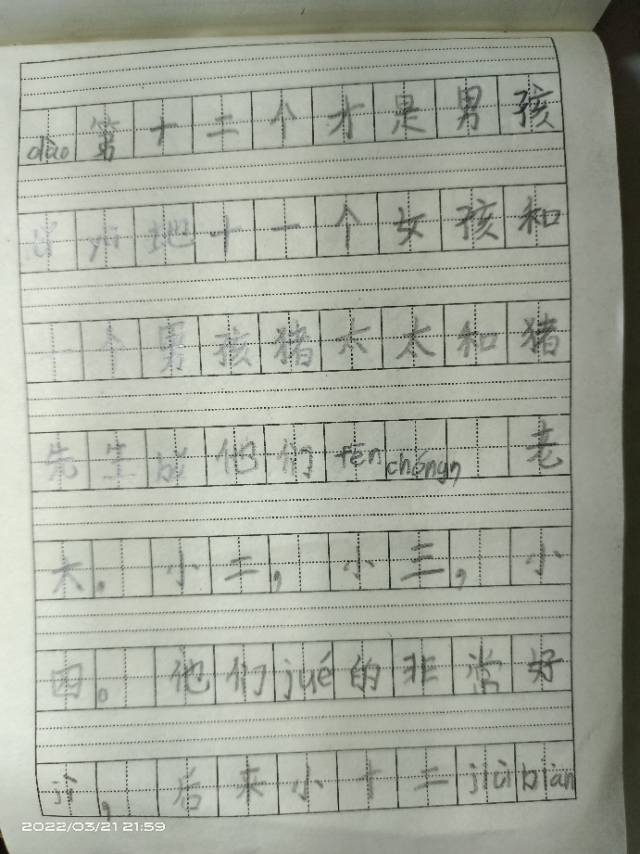 dào 第十二个才是男孩
yī 地十一个女孩和
一个男孩猪太太和猪
先生 他们 fēn chéng, 老
大。小二，小三，小
四。他们 jué 的非常好
jì，后来小十二 jiù biàn
2022/03/21 21:59